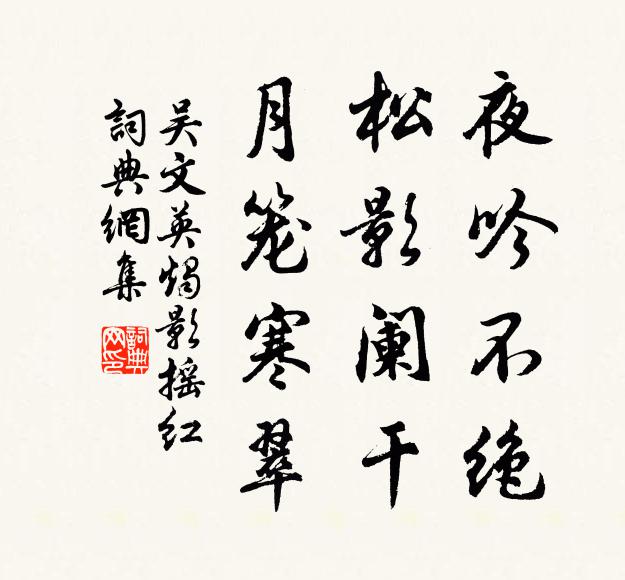 夜吟不绝
松影阑干
月笼寒翠
吴文英烛影摇红
詞典網集
詞典网印